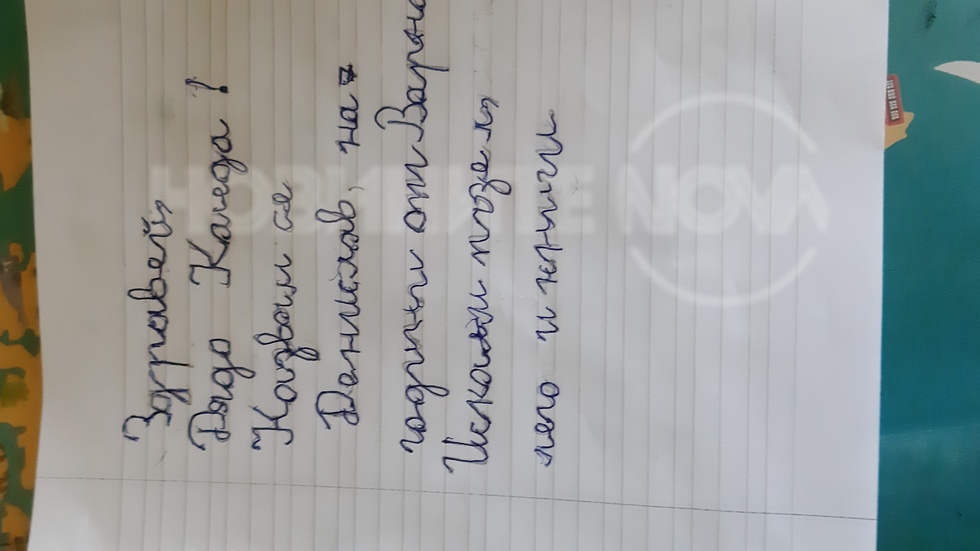 Здравей,
Дядо Коледа!
Казвам се
Денислав, на 7
годинки от Варна
Искам пъзел,
лего и книги
НОВИНИТЕ NOVA